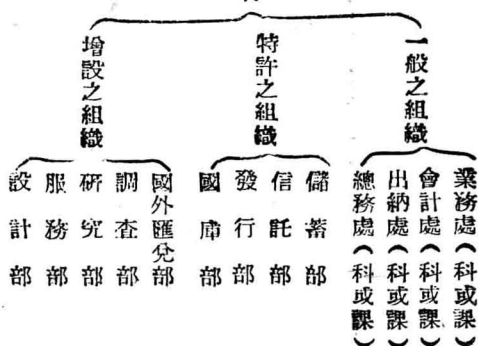 一般之組織
業務處（科或課）
會計處（科或課）
出納處（科或課）
總務處（科或課）
特許之組織
儲蓄部
信託部
發行部
國庫部
增設之組織
國外匯兌部
調查部
研究部
服務部
設計部